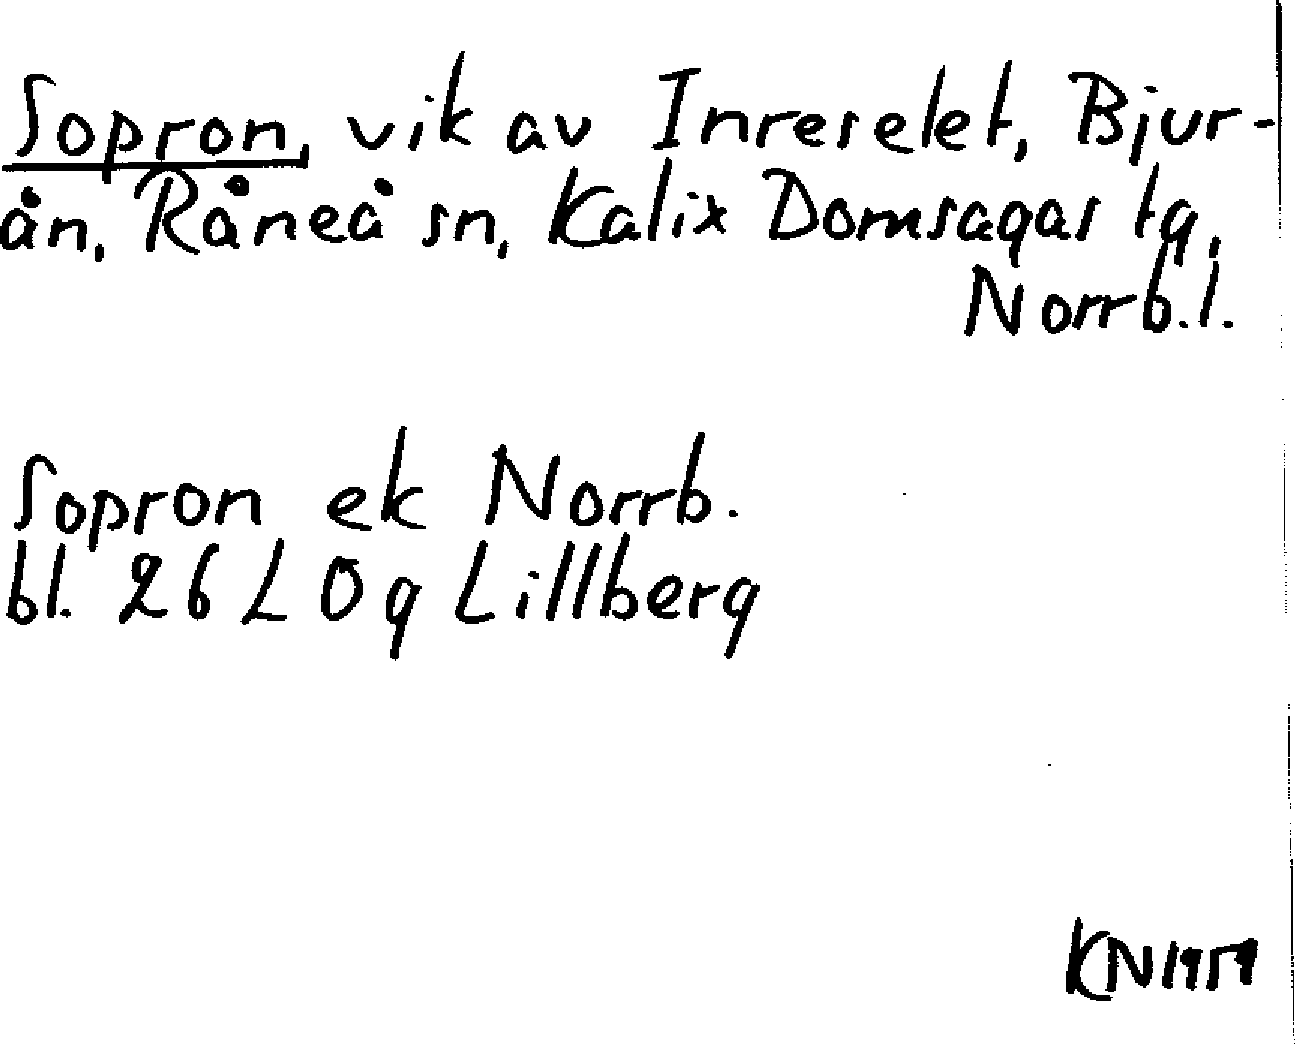 Sopron, vik av Inreselet, Bjur-
ån, Råneå sn, Kalix Domsagas tg,
Norrb.l.
Sopron ek Norrb.
bl. 26 L 0g Lillberg
KN 1959